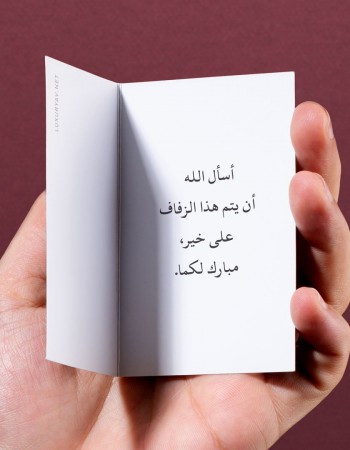 أسأل الله
أن يتم هذا الزفاف
على خير،
مبارك لكما.
LUXURYSY.NET